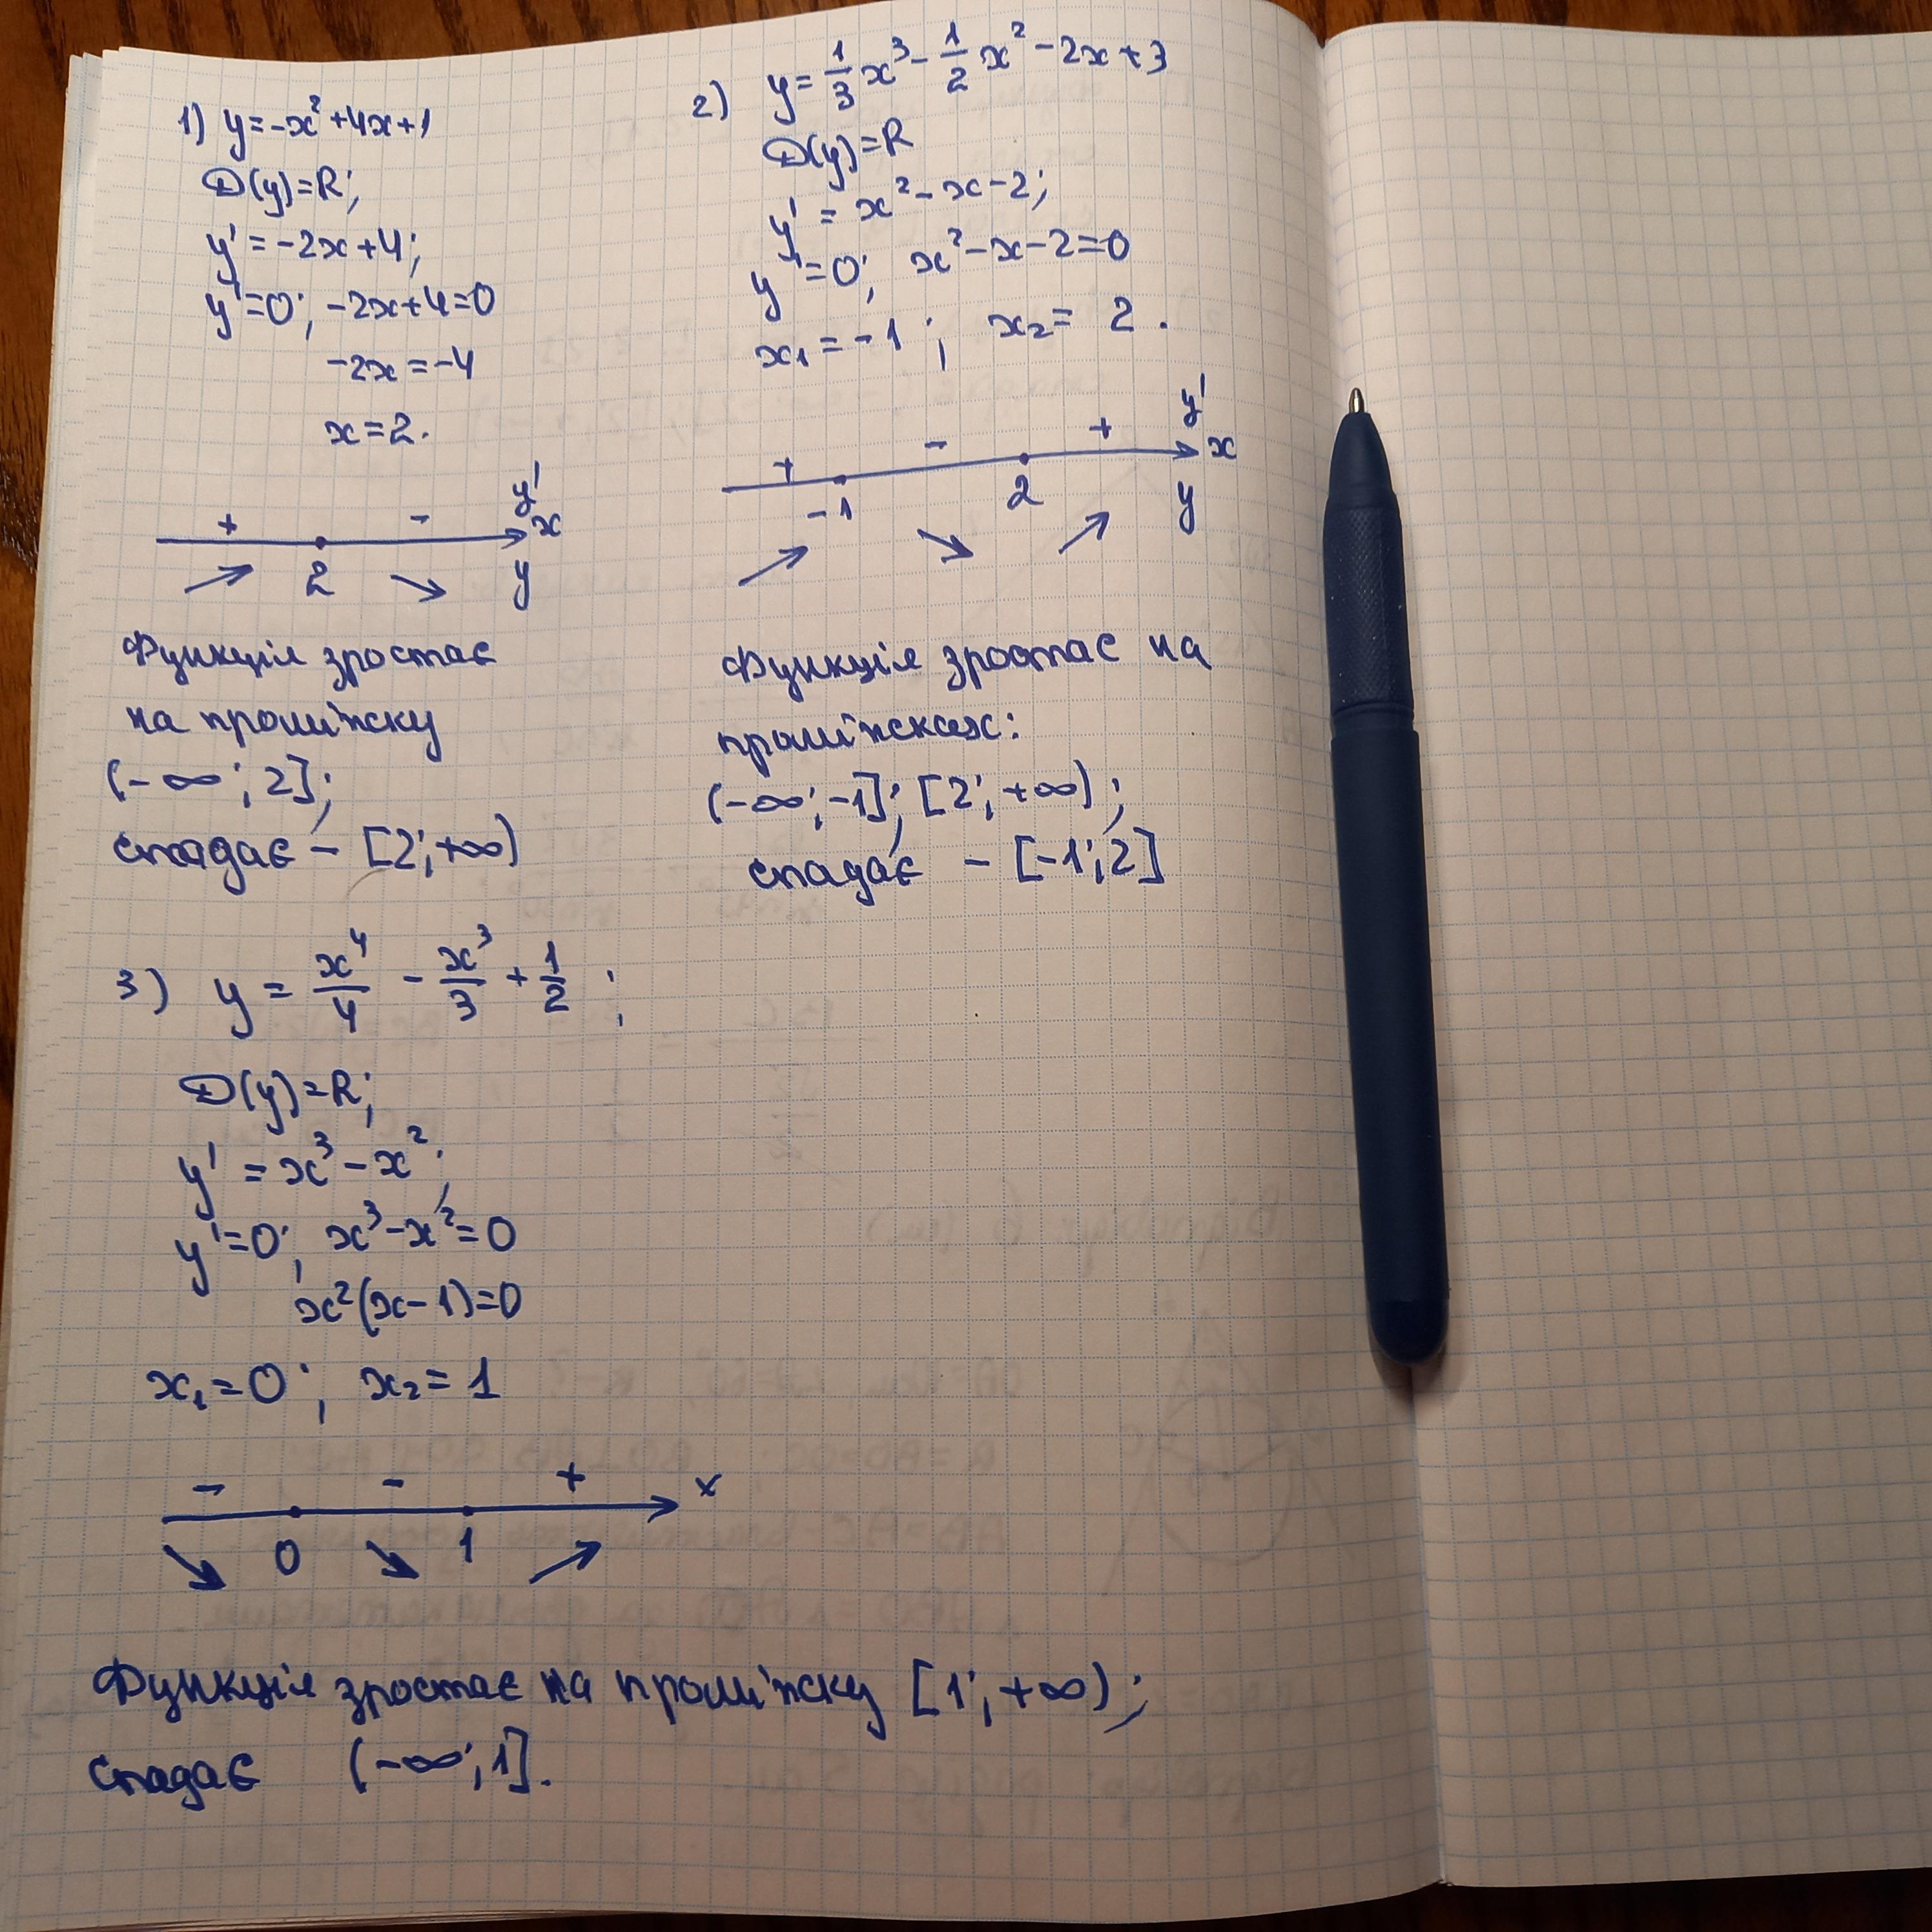 1) y=-x²+4x+1
D(y)=R;
y'=-2x+4;
y'=0; -2x+4=0
-2x=-4
x=2.
+ - y' x
2 y
Функція зростає
на проміжку
(-∞; 2];
спадає - [2;+∞)
2) y=1/3x³-1/2x²-2x+3
D(y)=R
y'=x²-x-2;
y'=0; x²-x-2=0
x₁=-1; x₂=2.
+ - + y' x
-1 2 y
Функція зростає на
проміжках:
(-∞;-1]; [2;+∞);
спадає - [-1;2]
3) y=x⁴/4-x³/3+1/2;
D(y)=R;
y'=x³-x²;
y'=0; x³-x²=0
x²(x-1)=0
x₁=0; x₂=1
- - + x
0 1
Функція зростає на проміжку [1;+∞);
спадає (-∞;1].